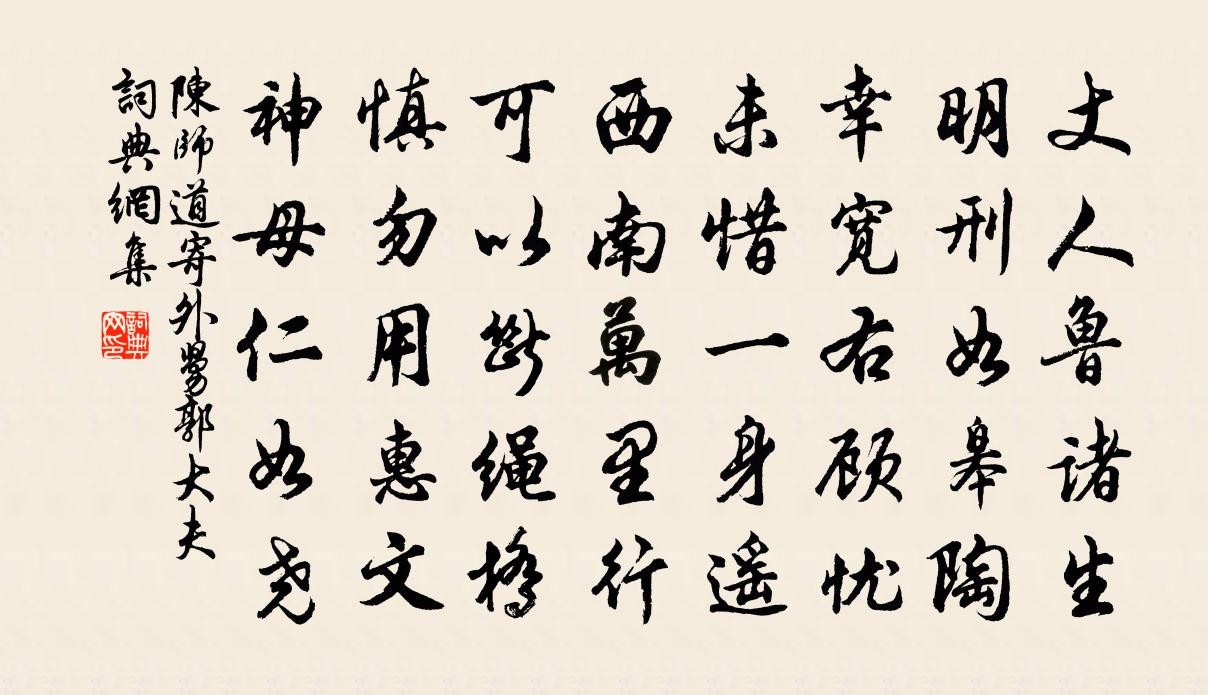 丈人鲁诸生
明刑如皋陶
幸宽右顾忧
未惜一身遥
西南萬里行
可以断绳橋
慎勿用惠文
神母仁如尧
陳師道寄外舅郭大夫
詞典網集
詞典网印